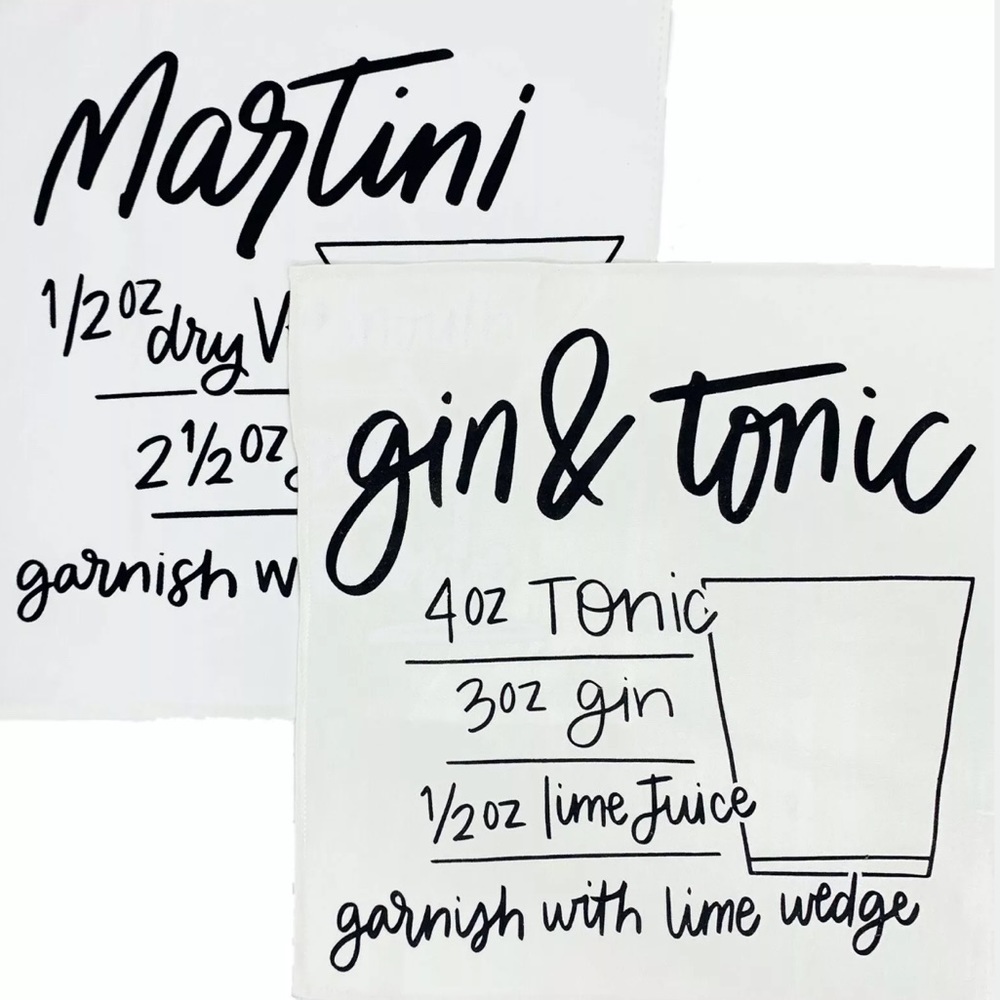 Martini
1/2 oz dry
2 1/2 oz
garnish
gin & tonic
4 oz Tonic
3 oz gin
1/2 oz lime Juice
garnish with lime wedge